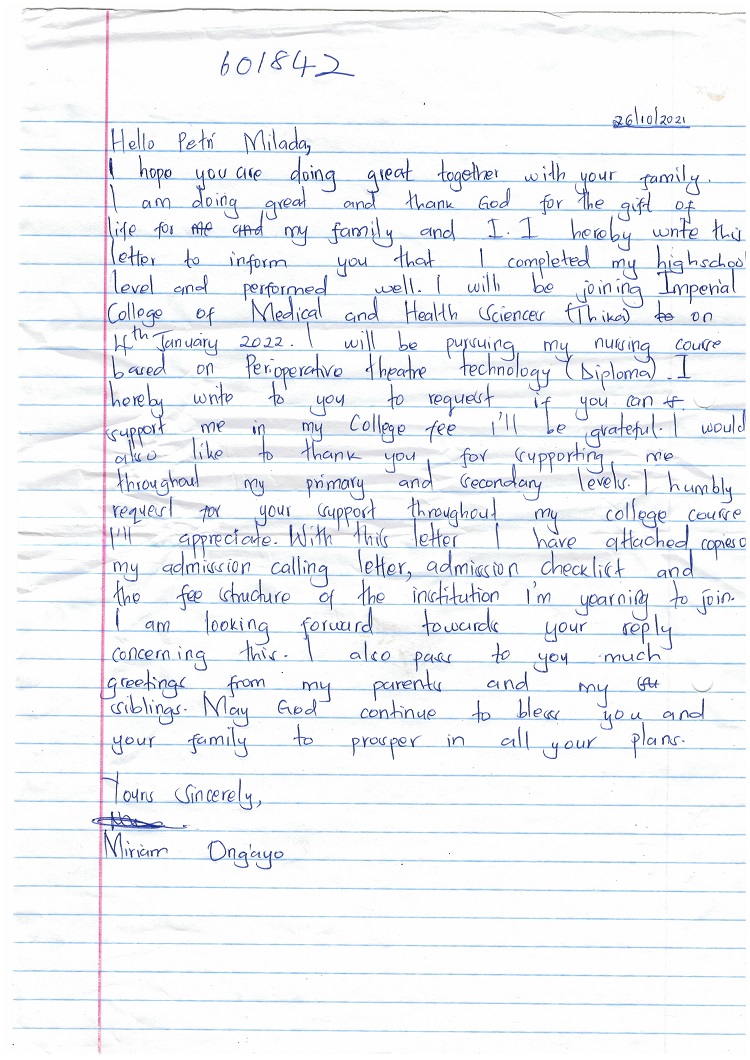 601842
26/10/2021
Hello Petr Milada,
I hope you are doing great together with your family.
I am doing great and thank God for the gift of
life for me and my family and I. I hereby write this
letter to inform you that I completed my highschool
level and performed well. I will be joining Imperial
College of Medical and Health Sciences (Thika) to on
4th January 2022. I will be pursuing my nursing course
based on Perioperative theatre technology (Diploma). I
hereby write to you to request if you can
support me in my College fee i'll be grateful. I would
also like to thank you for supporting me
throughout my primary and secondary levels. I humbly
request for your support throughout my college course
I'll appreciate. With this letter I have attached copies o
my admission calling letter, admission checklist and
the fee structure of the institution i'm yearning to join.
I am looking forward towards your reply
concerning this. I also pass to you much
greetings from my parents and my
siblings. May God continue to bless you and
your family to prosper in all your plans.
Yours Sincerely,
Miriam Ong'ayo